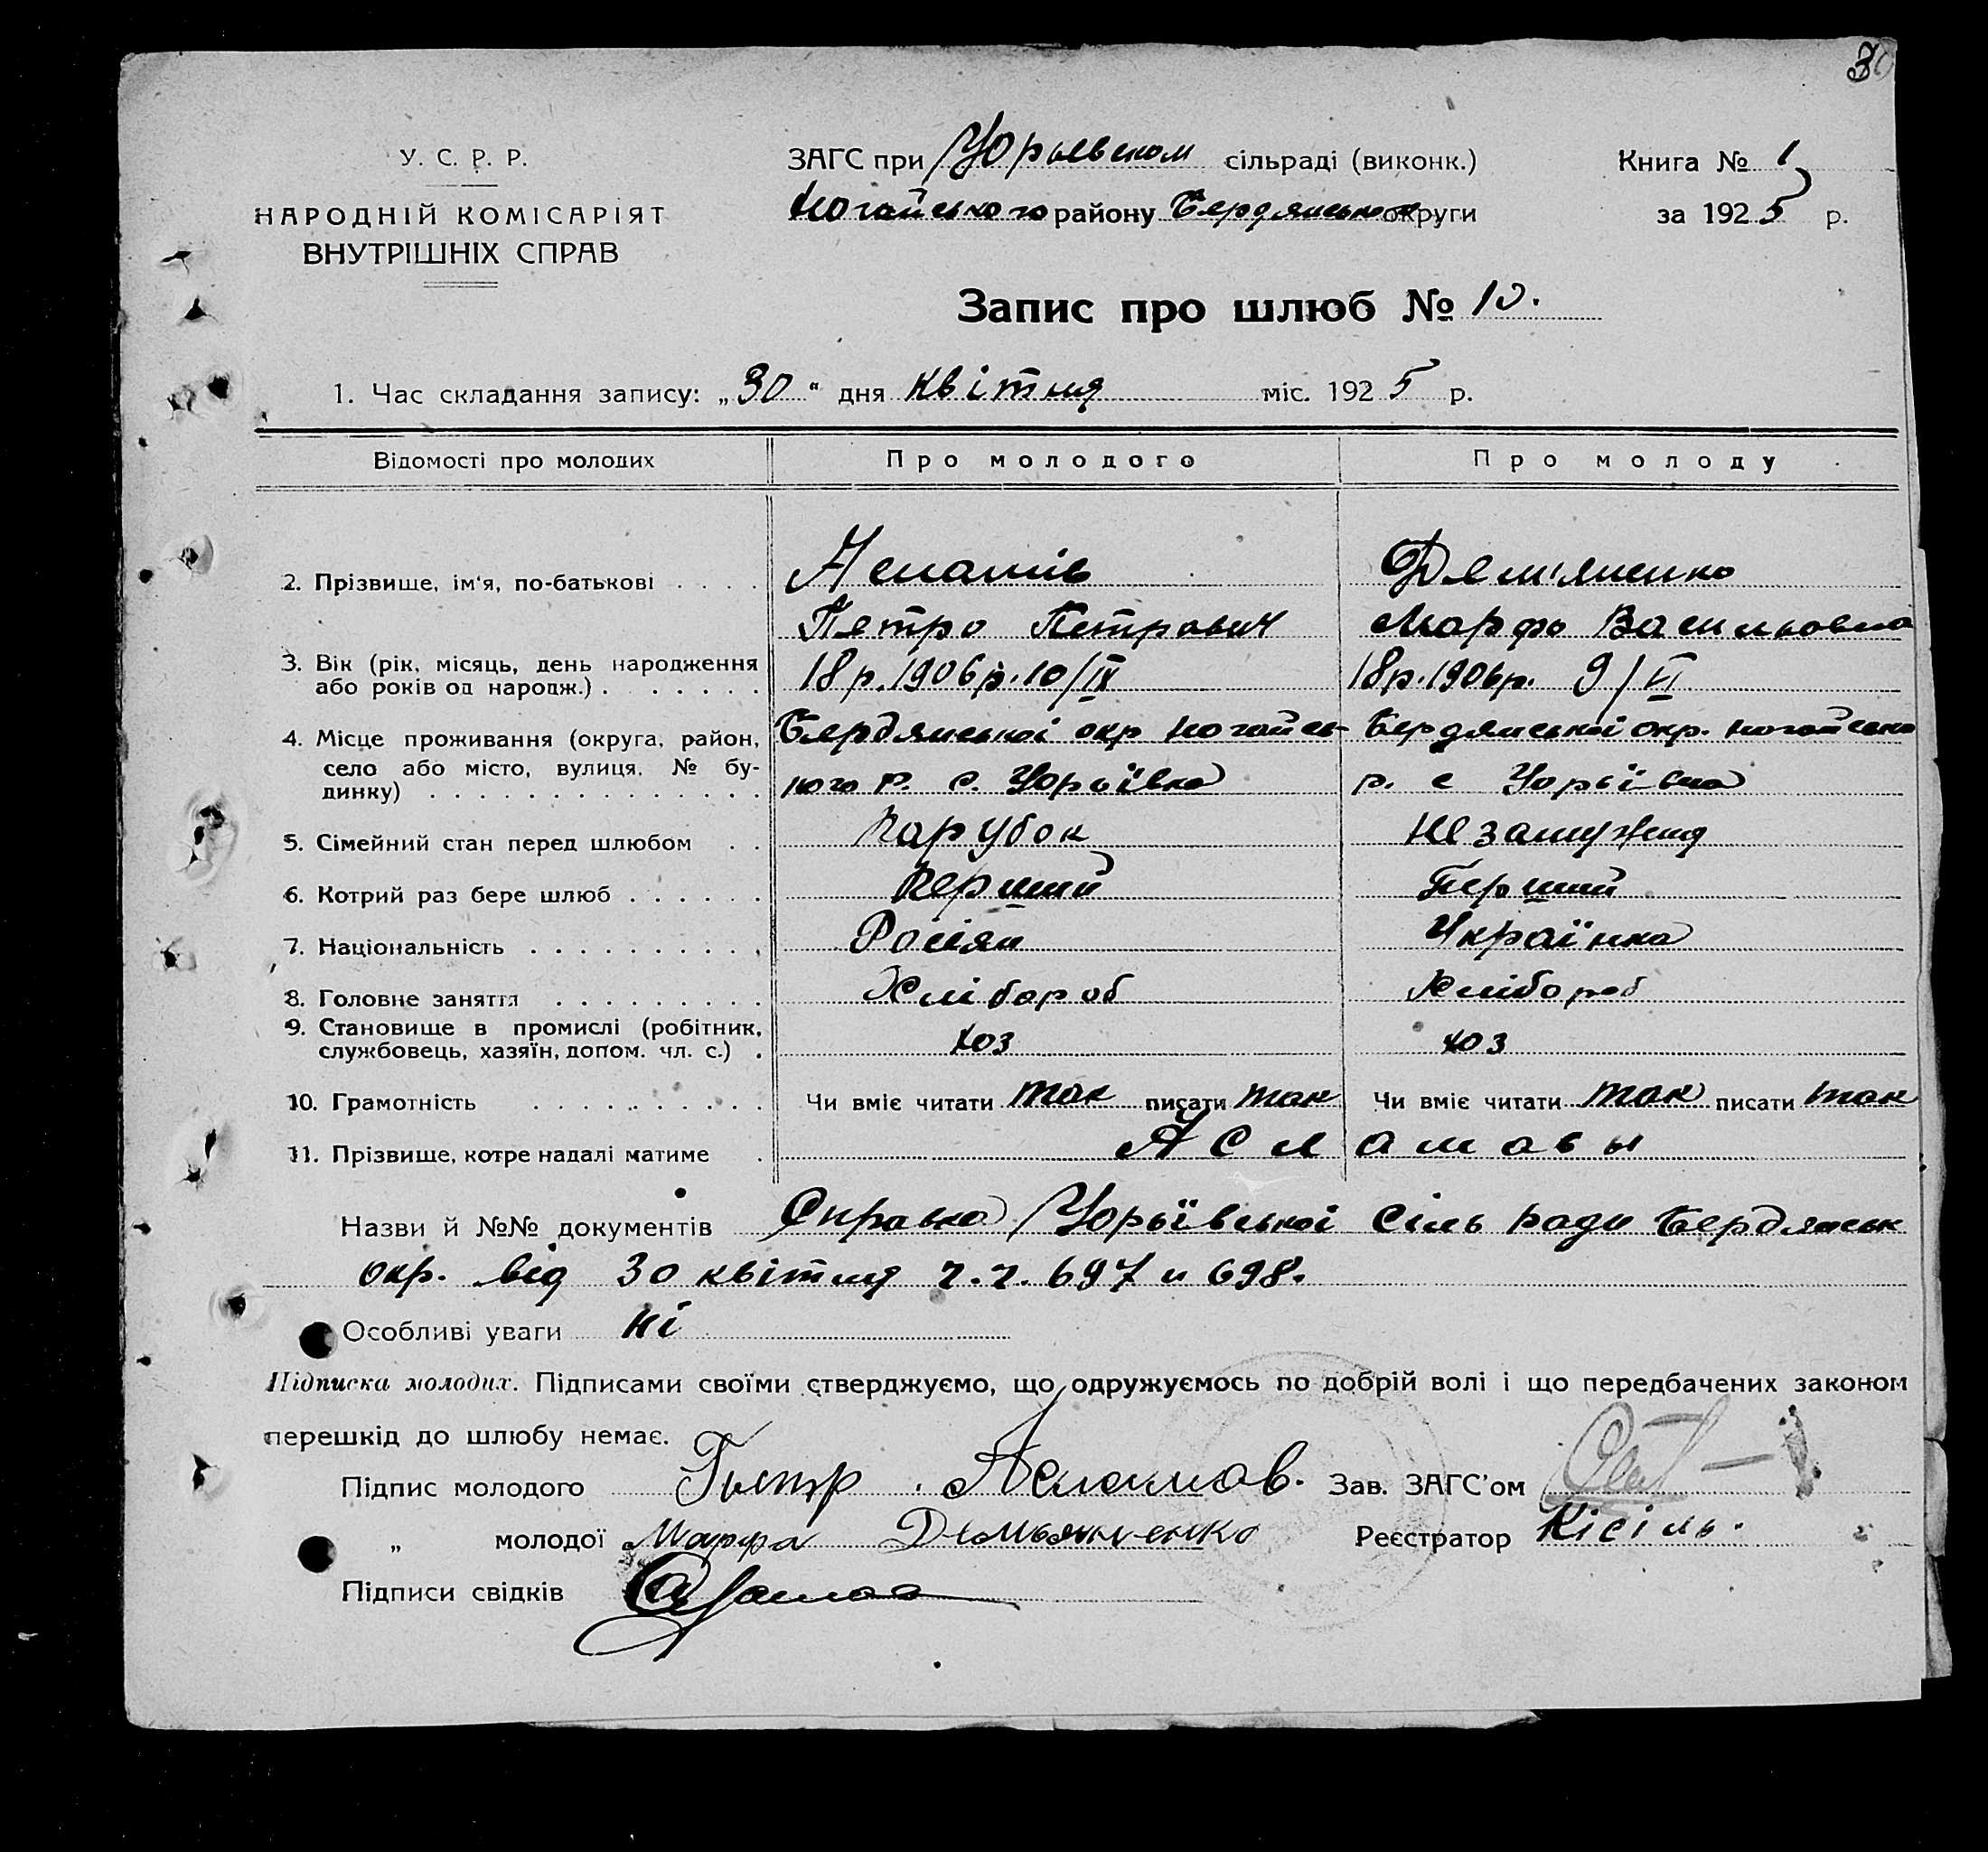 30
У. С. Р. Р.
НАРОДНІЙ КОМІСАРІЯТ
ВНУТРІШНІХ СПРАВ
ЗАГС при Юрьевском сільраді (виконк.)
Ногайського району Бердянської округи
Книга № 1
за 1925 р.
Запис про шлюб № 10.
1. Час складання запису: „30“ дня квітня міс. 1925 р.
Відомості про молодих
Про молодого
Про молоду
2. Прізвище, ім'я, по-батькові . . . .
Асламів
Дем'яненко
Петро Петрович
Марфа Васильовна
3. Вік (рік, місяць, день народження або років од народж.) . . . . . . .
18 р. 1906 р. 10/IX
18 р. 1906 р. 9/VI
4. Місце проживання (округа, район, село або місто, вулиця, № будинку) . . . . . . . . . . . . . .
Бердянської окр Ногайсь-
кого р. с. Юрьївка
Бердянської окр. Ногайсько
р. с Юрьївка
5. Сімейний стан перед шлюбом . .
Парубок
Незамужня
6. Котрий раз бере шлюб . . . . . .
Перший
Перший
7. Національність . . . . . . . . . .
Росіян
Українка
8. Головне заняття . . . . . . . . .
Хлібороб
Хлібороб
9. Становище в промислі (робітник, службовець, хазяїн, допом. чл. с.) .
хоз
хоз
10. Грамотність . . . . . . . . . .
Чи вміє читати так писати так
Чи вміє читати так писати так
11. Прізвище, котре надалі матиме .
Асламовы
Назви й №№ документів Справка Юрьївської Сіль ради Бердянськ
окр. від 30 квітня ч.ч. 697 и 698.
Особливі уваги ні
Підписка молодих. Підписами своїми стверджуємо, що одружуємось по добрій волі і що передбачених законом
перешкід до шлюбу немає.
Підпис молодого Петр Асламов. Зав. ЗАГС'ом
„ молодої Марфа Демьяненко Реєстратор Кісіль.
Підписи свідків